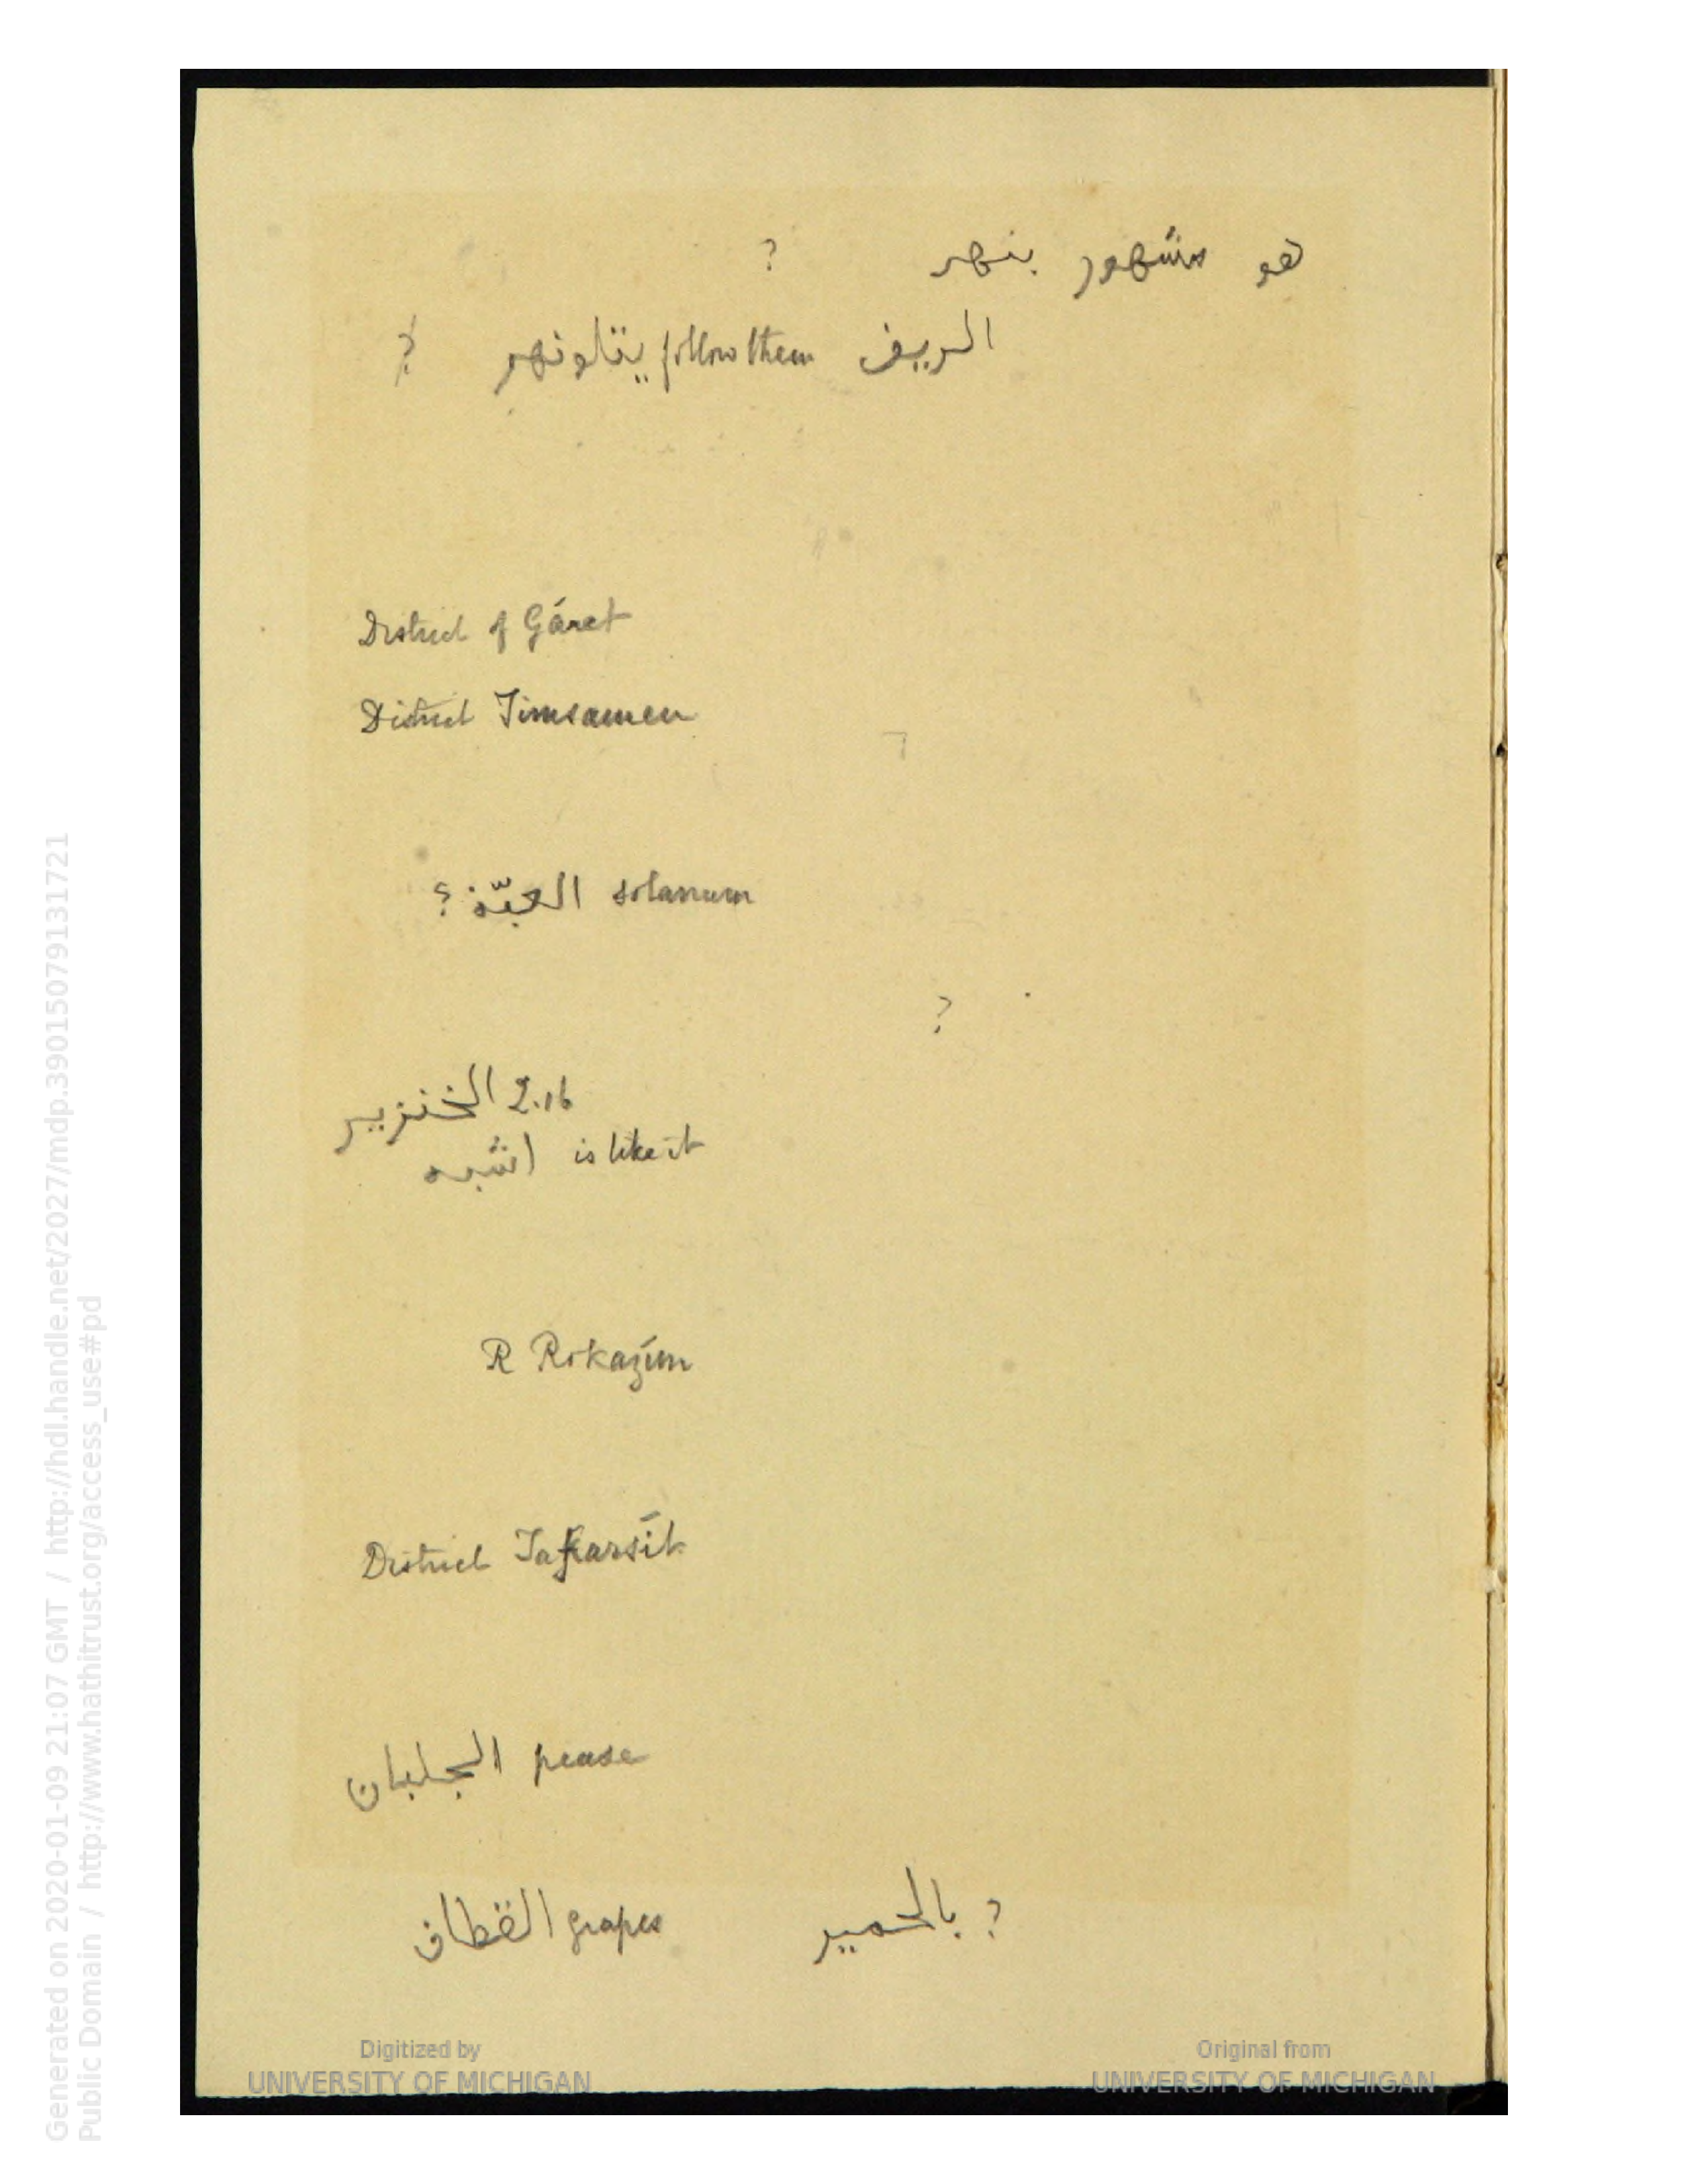 هو مشهور بنهر ?
الريف follow them يتلونهم ?
District of Gáret
District Timsamen
solanum العبّة ؟
?
2.16 الخنزير
اشبه is like it
R Rokazim
District Tafarsit
الجلبان pease
القطاف grapes بالحمير ?
Digitized by
UNIVERSITY OF MICHIGAN
Original from
UNIVERSITY OF MICHIGAN
Generated on 2020-01-09 21:07 GMT / http://hdl.handle.net/2027/mdp.39015079131721
Public Domain / http://www.hathitrust.org/access_use#pd